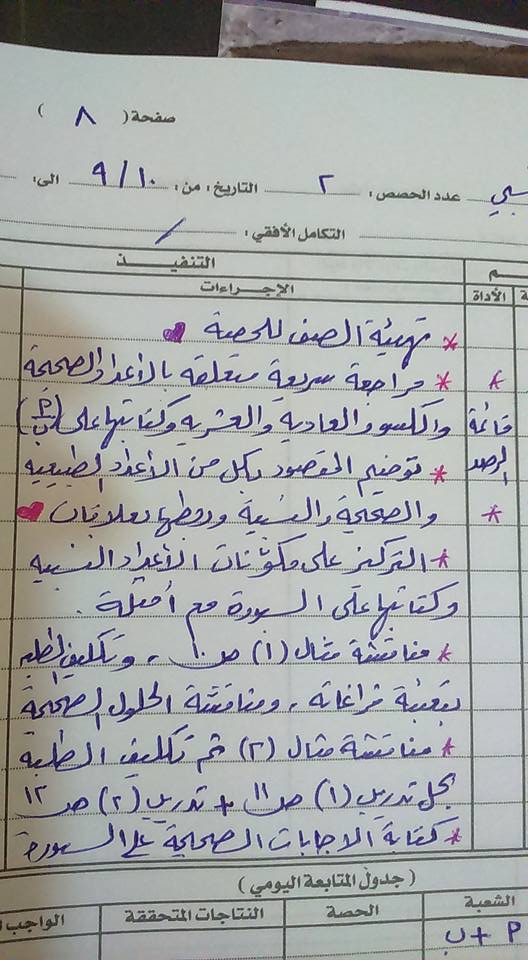 صفحة ( ٨ )
سبي عدد الحصص: ٢ التاريخ: من: ٩/١٠ الى:
التكامل الأفقي: /
م التنفيذ
الأداة الإجراءات
* تهيئة الصف للحصة
* * مراجعة سريعة متعلقة بالأعداد الصحيحة
قائمة والكسور العادية والعشرية وكتابتها على (أ/ب)
الرصد * توضيح المقصود بكل من الأعداد الطبيعية
* والصحيحة والنسبية وربطها بعلاقات
* التركيز على مكونات الأعداد النسبية
وكتابتها على السبورة مع أمثلة.
* مناقشة مثال (١) ص١٠، وتكليف الطلبة
بتعبئة فراغاته، ومناقشة الحلول الصحيحة
* مناقشة مثال (٢) ثم تكليف الطلبة
بحل تدريب (١) ص١١ + تدريب (٢) ص١٢
* كتابة الاجابات الصحيحة على السبورة
( جدول المتابعة اليومي )
الشعبة الحصة النتاجات المتحققة الواجب
أ + ب